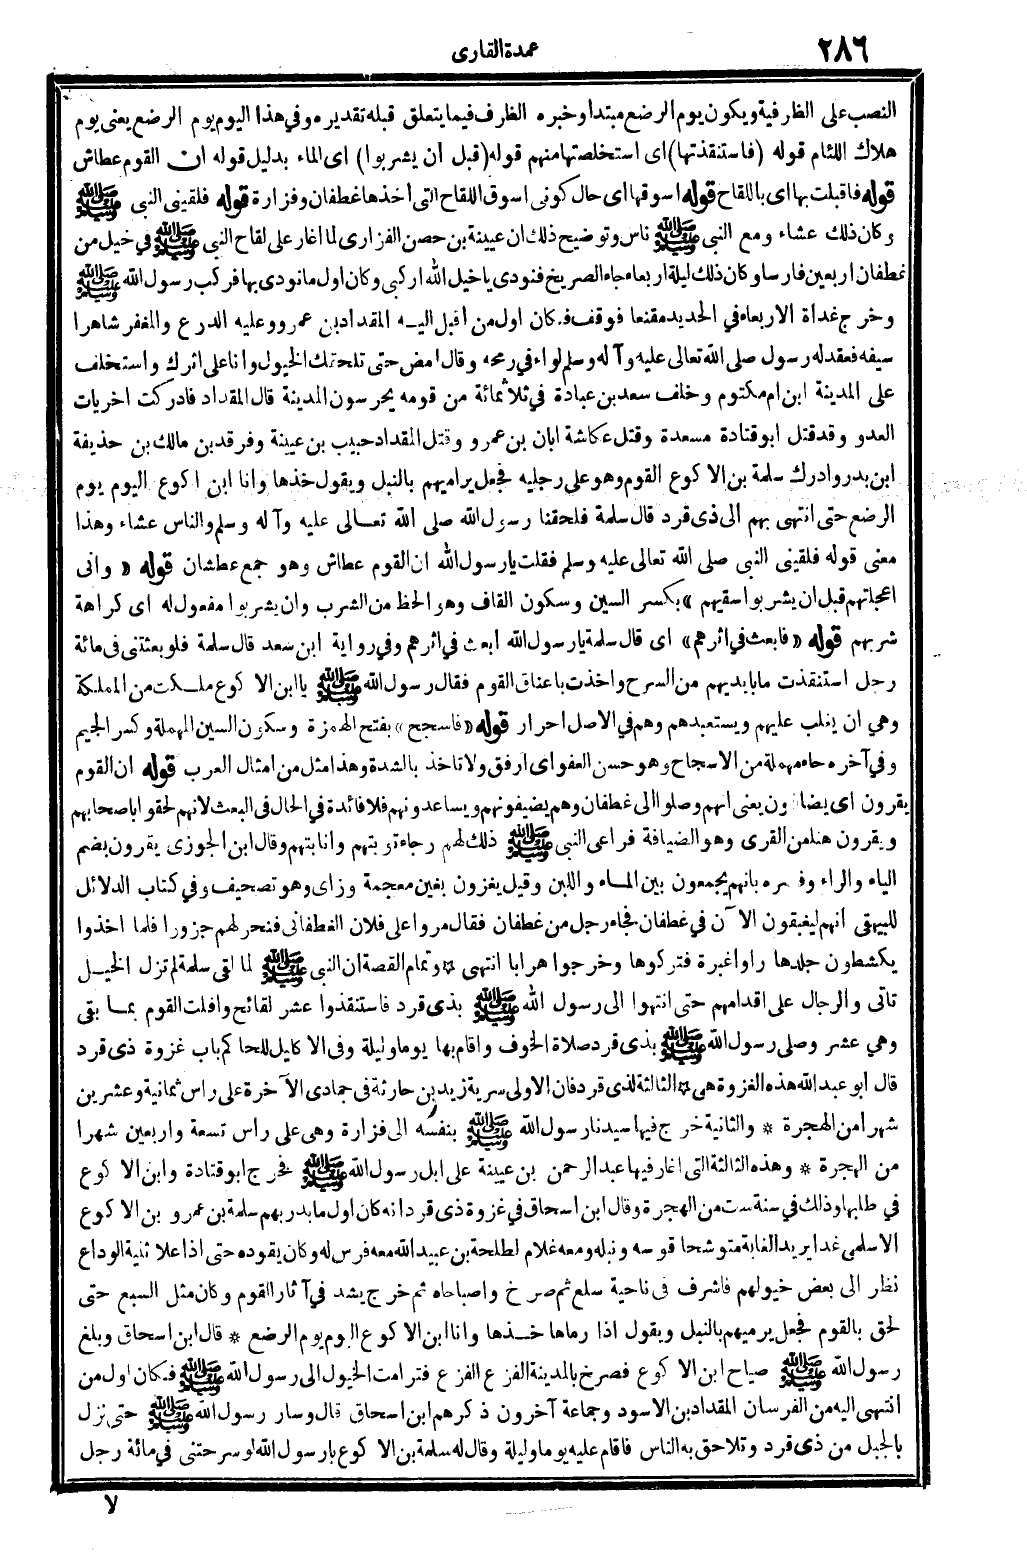 ٢٨٦
عمدة القارى
النصب على الظرفية ويكون يوم الرضع مبتدا وخبره الظرف فيما يتعلق قبله تقديره وفي هذا اليوم يوم الرضع يعنى يوم
هلاك اللئام قوله (فاستنقذتها) اى استخلصتها منهم قوله (قبل أن يشربوا) اى الماء بدليل قوله ان القوم عطاش
قوله فاقبلت بها اى باللقاح قوله اسوقها اى حال كونى اسوق اللقاح التى أخذها غطفان وفزارة قوله فلقينى النبى ﷺ
وكان ذلك عشاء ومع النبى ﷺ ناس وتوضيح ذلك ان عيينة بن حصن الفزارى لما اغار على لقاح النبى ﷺ في خيل من
غطفان اربعين فارسا وكان ذلك ليلة اربعاء جاء الصريخ فنودى يا خيل الله اركبى وكان اول ما نودى بها فركب رسول الله ﷺ
وخرج غداة الاربعاء في الحديد مقنعا فوقف فكان اول من أقبل اليه المقداد بن عمرو وعليه الدرع والمغفر شاهرا
سيفه فعقد له رسول صلى الله تعالى عليه وآله وسلم لواء في رمحه وقال امض حتى تلحقك الخيول وانا على اثرك واستخلف
على المدينة ابن ام مكتوم وخلف سعد بن عبادة في ثلاثمائة من قومه يحرسون المدينة قال المقداد فادركت اخريات
العدو وقد قتل ابو قتادة مسعدة وقتل عكاشة ابان بن عمرو وقتل المقداد حبيب بن عيينة وفرقد بن مالك بن حذيفة
ابن بدر وادرك سلمة بن الاكوع القوم وهو على رجليه فجعل يراميهم بالنبل ويقول خذها وانا ابن اكوع اليوم يوم
الرضع حتى انتهى بهم الى ذى قرد قال سلمة فلحقنا رسول الله صلى الله تعالى عليه وآله وسلم والناس عشاء وهذا
معنى قوله فلقينى النبى صلى الله تعالى عليه وسلم فقلت يا رسول الله ان القوم عطاش وهو جمع عطشان قوله « وانى
اعجلتهم قبل ان يشربوا سقيهم » بكسر السين وسكون القاف وهو الحظ من الشرب وان يشربوا مفعول له اى كراهة
شربهم قوله « فابعث في اثرهم » اى قال سلمة يا رسول الله ابعث في اثرهم وفي رواية ابن سعد قال سلمة فلو بعثتنى فى مائة
رجل استنقذت ما بايديهم من السرح واخذت باعناق القوم فقال رسول الله ﷺ يا ابن الاكوع ملكت من المملكة
وهي ان يغلب عليهم ويستعبدهم وهم في الاصل احرار قوله « فاسجح » بفتح الهمزة وسكون السين المهملة وكسر الجيم
وفي آخره حاء مهملة من الاسجاح وهو حسن العفو اى ارفق ولا تاخذ بالشدة وهذا مثل من امثال العرب قوله ان القوم
يقرون اى يضافون يعنى انهم وصلوا الى غطفان وهم يضيفونهم ويساعدونهم فلا فائدة في الحال فى البعث لانهم لحقوا باصحابهم
ويقرون هنا من القرى وهو الضيافة فراعى النبى ﷺ ذلك لهم رجاء توبتهم وانابتهم وقال ابن الجوزى يقرون بضم
الياء والراء وفسره بانهم يجمعون بين الماء واللبن وقيل يغزون بغين معجمة وزاى وهو تصحيف وفي كتاب الدلائل
للبيهقى انهم ليغبقون الآن في غطفان فجاء رجل من غطفان فقال مروا على فلان الغطفانى فنحر لهم جزورا فلما اخذوا
يكشطون جلدها راوا غبرة فتركوها وخرجوا هرابا انتهى * وتمام القصة ان النبى ﷺ لما لقى سلمة لم تزل الخيل
تاتى والرجال على اقدامهم حتى انتهوا الى رسول الله ﷺ بذى قرد فاستنقذوا عشر لقائح وافلت القوم بما بقى
وهي عشر وصلى رسول الله ﷺ بذى قرد صلاة الخوف واقام بها يوما وليلة وفى الاكليل للحاكم باب غزوة ذى قرد
قال ابو عبد الله هذه الغزوة هى * الثالثة لذى قرد فان الاولى سرية زيد بن حارثة فى جمادى الآخرة على راس ثمانية وعشرين
شهرا من الهجرة * والثانية خرج فيها سيدنا رسول الله ﷺ بنفسه الى فزارة وهى على راس تسعة واربعين شهرا
من الهجرة * وهذه الثالثة التى اغار فيها عبد الرحمن بن عيينة على ابل رسول الله ﷺ فخرج ابو قتادة وابن الاكوع
في طلبها وذلك في سنة ست من الهجرة وقال ابن اسحاق في غزوة ذى قرد انه كان اول ما بدر بهم سلمة بن عمرو بن الاكوع
الاسلمى غدا يريد الغابة متوشحا قوسه ونبله ومعه غلام لطلحة بن عبيد الله معه فرس له وكان يقوده حتى اذا علا ثنية الوداع
نظر الى بعض خيولهم فاشرف فى ناحية سلع ثم صرخ واصباحاه ثم خرج يشد في آثار القوم وكان مثل السبع حتى
لحق بالقوم فجعل يرميهم بالنبل ويقول اذا رماها خذها وانا ابن الاكوع اليوم يوم الرضع * قال ابن اسحاق وبلغ
رسول الله ﷺ صياح ابن الاكوع فصرخ بالمدينة الفزع الفزع فترامت الخيول الى رسول الله ﷺ فكان اول من
انتهى اليه من الفرسان المقداد بن الاسود وجماعة آخرون ذكرهم ابن اسحاق قال وسار رسول الله ﷺ حتى نزل
بالجبل من ذى قرد وتلاحق به الناس فاقام عليه يوما وليلة وقال له سلمة بن الاكوع يا رسول الله لو سرحتنى في مائة رجل
لا